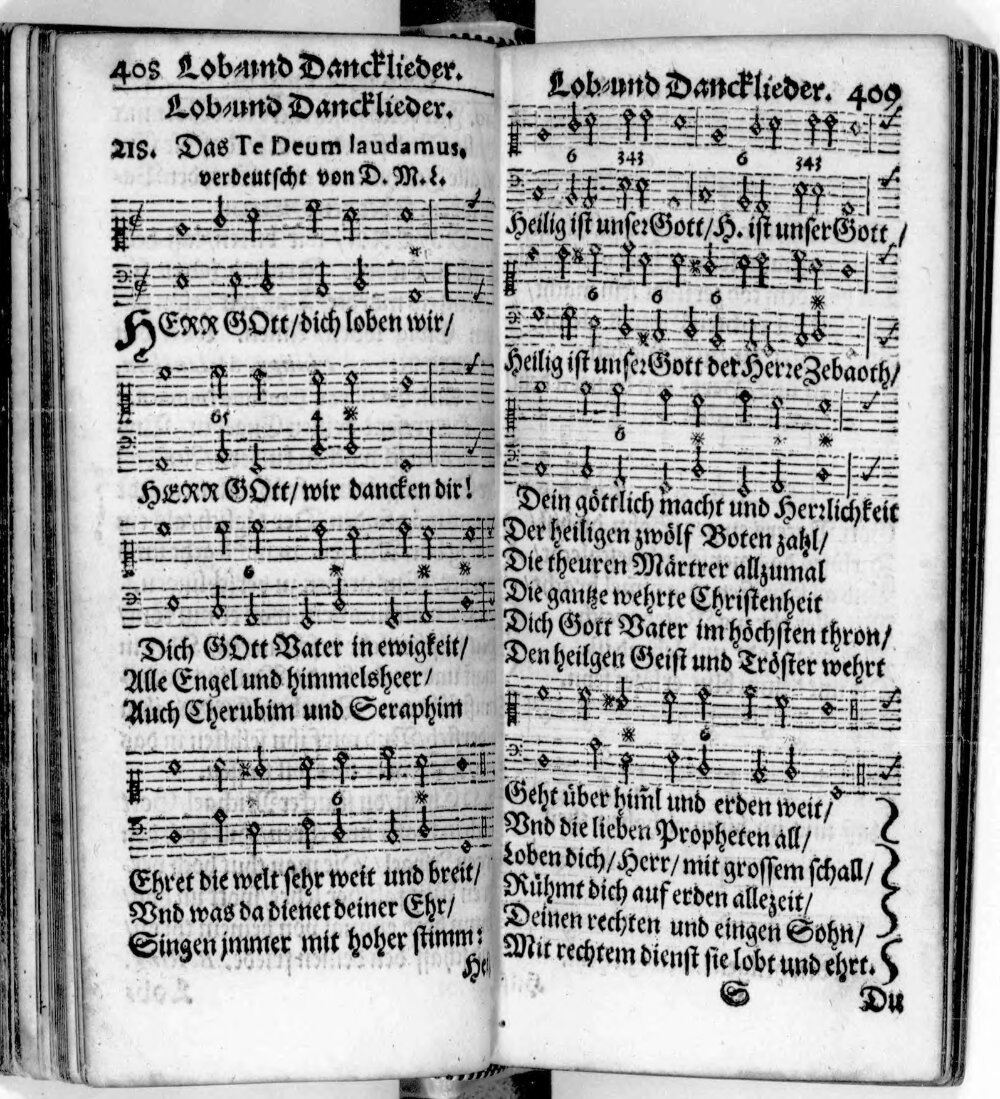 408 Lob-und Dancklieder.
Lob-und Dancklieder.
218. Das Te Deum laudamus,
verdeutscht von D. M. L.
HERR GOtt/dich loben wir/
65 4
HERR GOtt/wir dancken dir!
6
Dich GOtt Vater in ewigkeit/
Alle Engel und himmelsheer/
Auch Cherubim und Seraphim
6
Ehret die welt sehr weit und breit/
Vnd was da dienet deiner Ehr/
Singen jmmer mit hoher stimm:
Lob-und Dancklieder. 409
6 343 6 343
Heilig ist unser Gott/H. ist unser Gott/
6 6 6
Heilig ist unser Gott der Herre Zebaoth/
6
Dein göttlich macht und Herrlichkeit
Der heiligen zwölf Boten zahl/
Die theuren Märtrer allzumal
Die gantze wehrte Christenheit
Dich Gott Vater im höchsten thron/
Den heilgen Geist und Tröster wehrt
6
Geht über him̃l und erden weit/
Vnd die lieben Propheten all/
Loben dich/Herr/mit grossem schall/
Rühmt dich auf erden allezeit/
Deinen rechten und eingen Sohn/
Mit rechtem dienst sie lobt und ehrt.
S Du